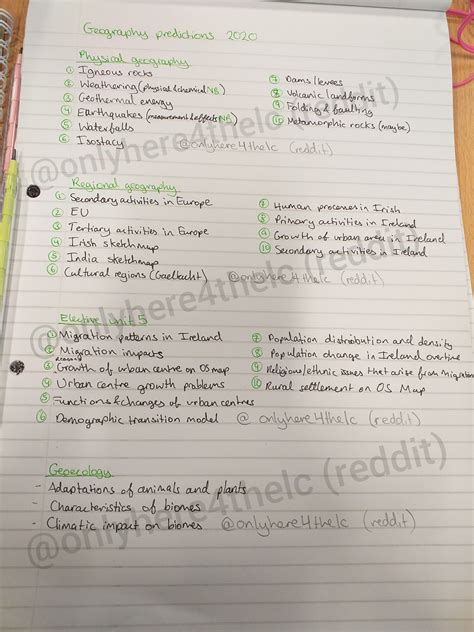 Geography predictions 2020
Physical geography
① Igneous rocks
② Weathering (physical & chemical NB)
③ Geothermal energy
④ Earthquakes (measurement & effects NB)
⑤ Waterfalls
⑥ Isostacy
⑦ Dams/levees
⑧ Volcanic landforms
⑨ Folding & faulting
⑩ Metamorphic rocks (maybe)
@onlyhere4thelc (reddit)
@onlyhere4thelc (reddit)
Regional geography
① Secondary activities in Europe
② EU
③ Tertiary activities in Europe
④ Irish sketchmap
⑤ India sketchmap
⑥ Cultural regions (Gaeltacht)
⑦ Human processes in Irish
⑧ Primary activities in Ireland
⑨ Growth of urban area in Ireland
⑩ Secondary activities in Ireland
@onlyhere4thelc (reddit)
@onlyhere4thelc (reddit)
Elective unit 5
① Migration patterns in Ireland
② Migration impacts
③ Growth of urban centre on OS map
④ Urban centre growth problems
⑤ Functions & changes of urban centres
⑥ Demographic transition model
⑦ Population distribution and density
⑧ Population change in Ireland overtime
⑨ Religious/ethnic issues that arise from migration
⑩ Rural settlement on OS Map
@onlyhere4thelc (reddit)
Geoecology
- Adaptations of animals and plants
- Characteristics of biomes
- Climatic impact on biomes
@onlyhere4thelc (reddit)
@onlyhere4thelc (reddit)